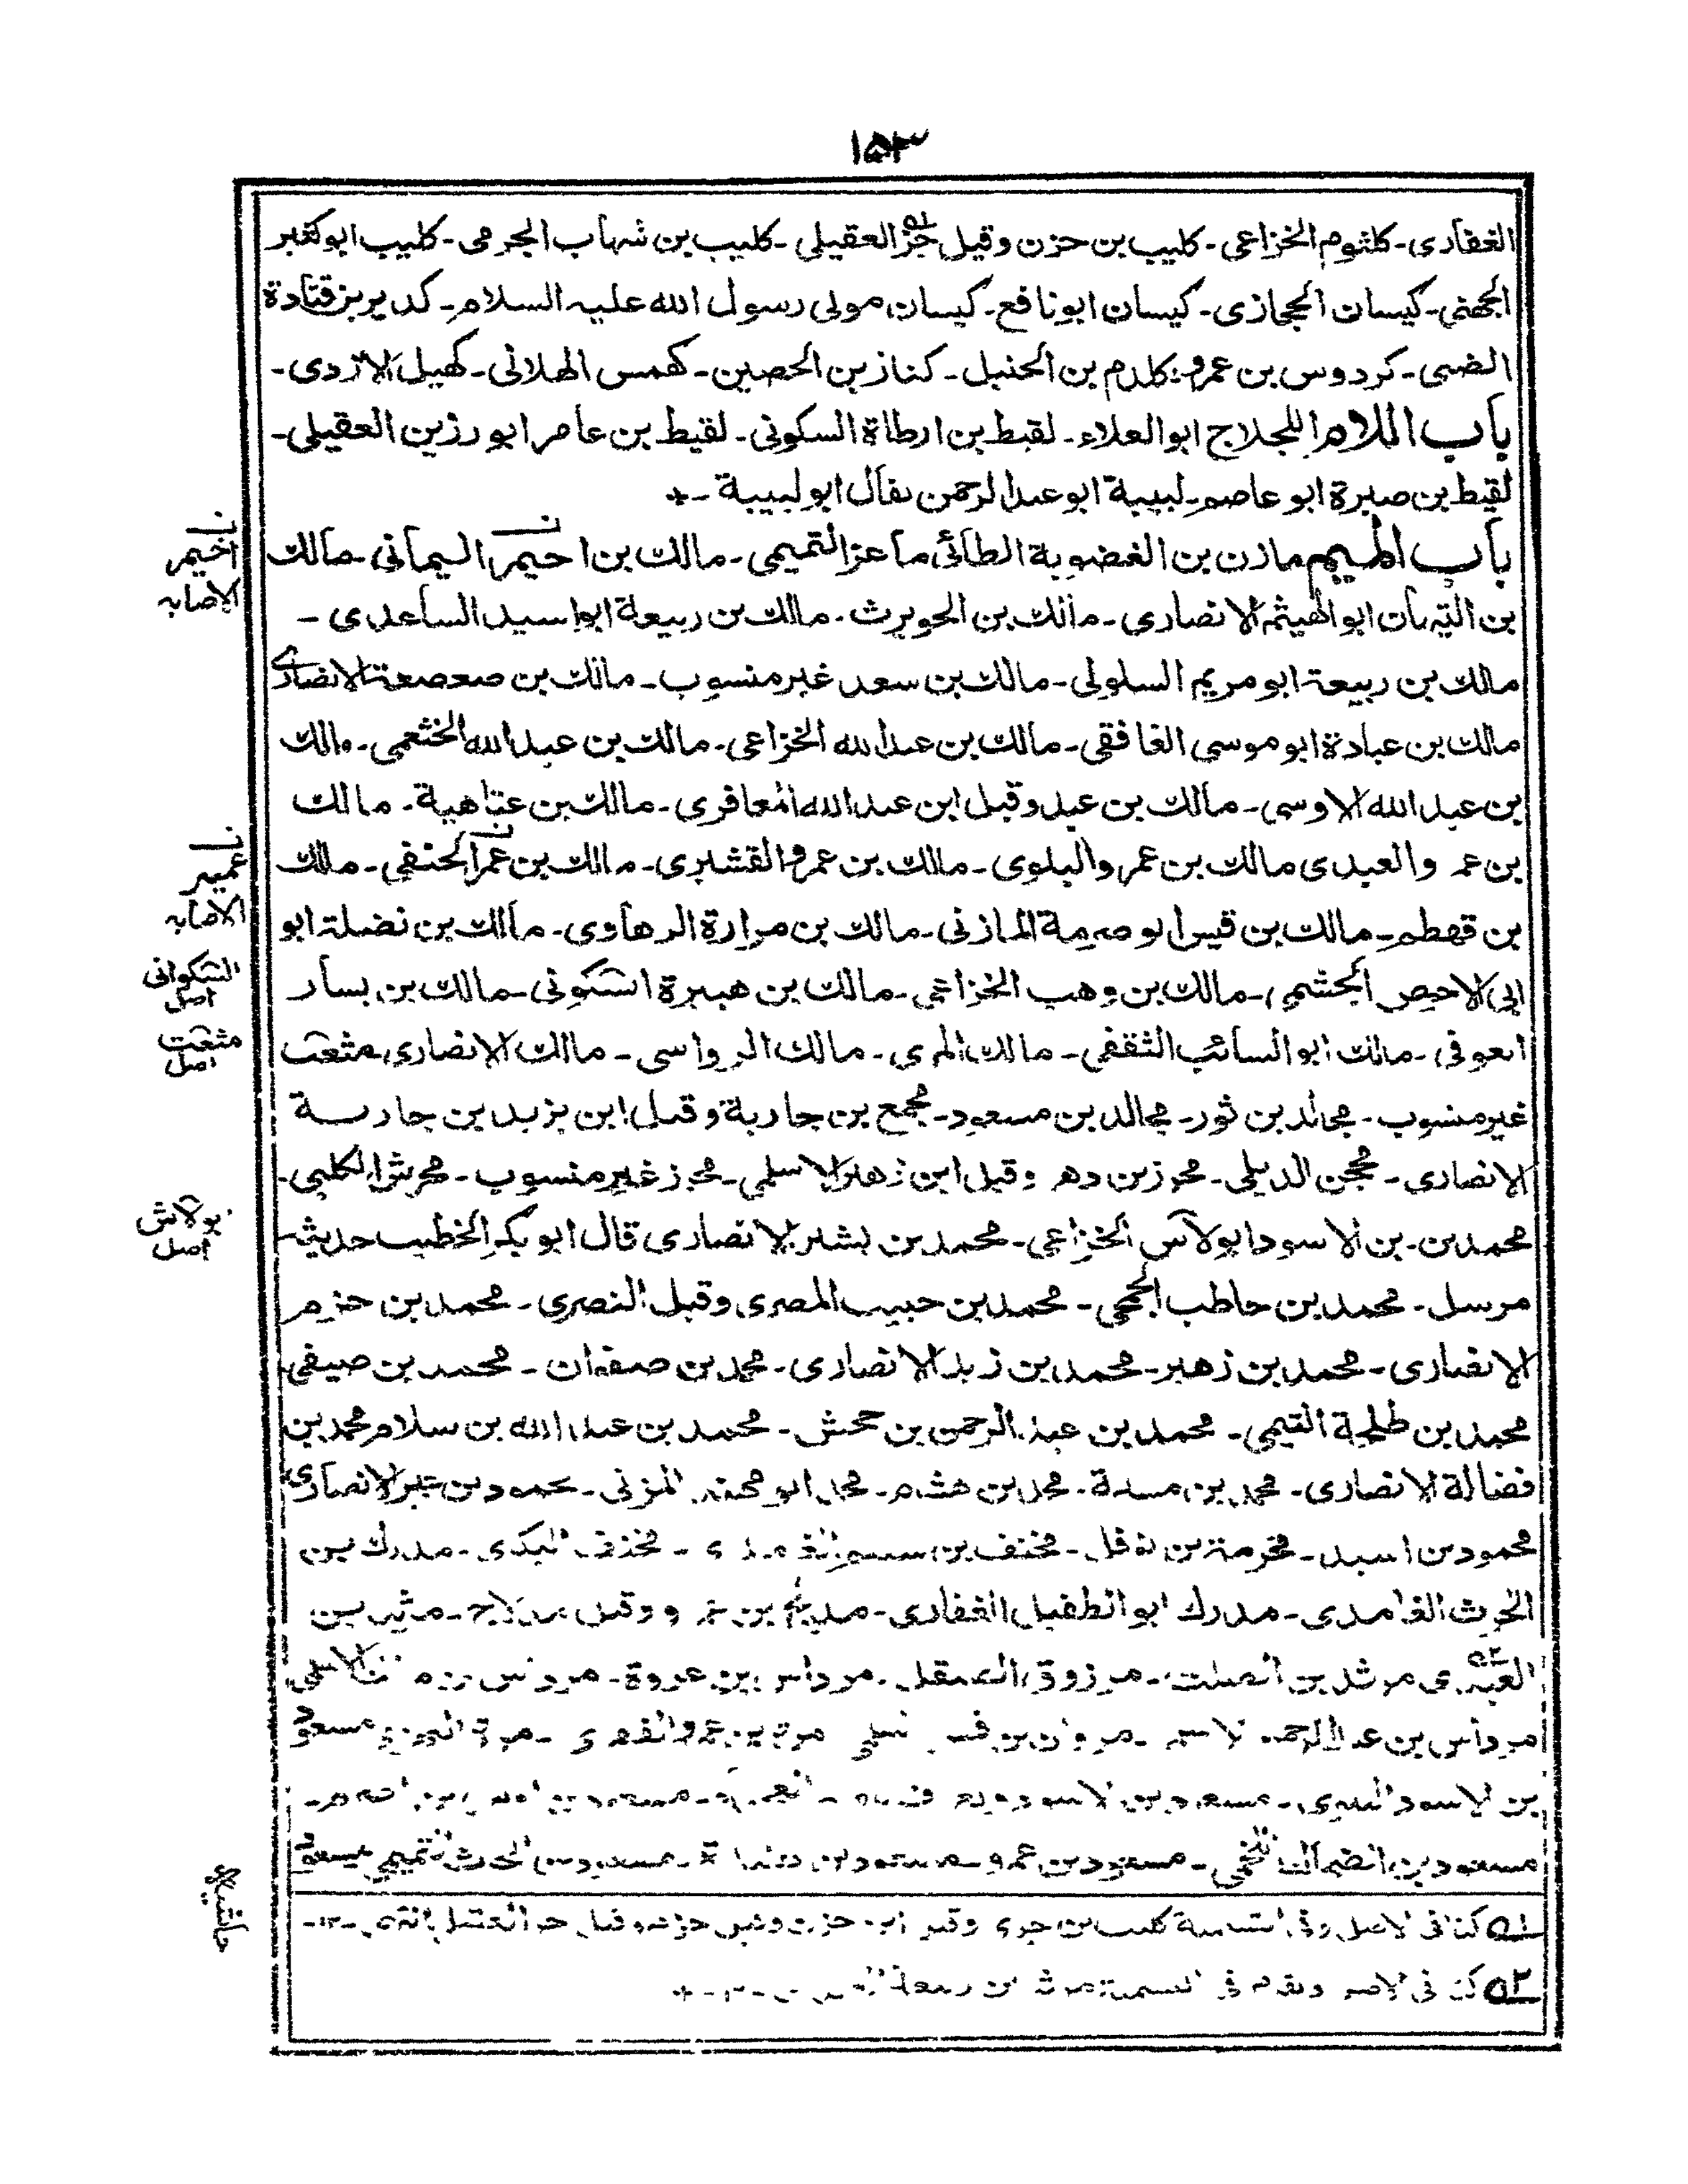 ١٥٣
الغفاري - كلثوم الخزاعي - كليب بن حزن وقيل جز العقيلي - كليب بن شهاب الجرمي - كليب ابو كثير
الجهني - كيسان الحجازي - كيسان ابو نافع - كيسان مولى رسول الله عليه السلام - كدير بن قتادة
الضبى - كردوس بن عمرو - كلدم بن الحنبل - كناز بن الحصين - كهمس الهلالي - كهيل الازدي -
باب اللام اللجلاج ابو العلاء - لقيط بن ارطاة السكوني - لقيط بن عامر ابو رزين العقيلي -
لقيط بن صبرة ابو عاصم - لبيبة ابو عبد الرحمن يقال ابو لبيبة - *
باب الميم مازن بن الغضوبة الطائي ماعز التميمي - مالك بن احيمر اليماني - مالك
اخيمر
الاصابه
بن التيهان ابو الهيثم الانصاري - مالك بن الحويرث - مالك بن ربيعة ابو اسيد الساعدي -
مالك بن ربيعة ابو مريم السلولي - مالك بن سعد غير منسوب - مالك بن صعصعة الانصاري
مالك بن عبادة ابو موسى الغافقي - مالك بن عبد الله الخزاعي - مالك بن عبد الله الخثعمي - مالك
بن عبد الله الاوسي - مالك بن عبد وقيل ابن عبد الله المعافري - مالك بن عتاهية - مالك
بن عمرو العبدي مالك بن عمرو البلوي - مالك بن عمرو القشيري - مالك بن عمر الحنفي - مالك
عمير
الاصابه
بن قهطم - مالك بن قيس ابو صرمة المازني - مالك بن مرارة الرهاوي - مالك بن نضلة ابو
ابي الاحوص الجشمي - مالك بن وهب الخزاعي - مالك بن هبيرة السكوني - مالك بن يسار
السكواني
اصل
العوفي - مالك ابو السائب الثقفي - مالك المري - مالك الرواسي - مالك الانصاري مثعب
مثعت
اصل
غير منسوب - مجالد بن ثور - مجالد بن مسعود - مجمع بن جارية وقيل ابن يزيد بن جارية
الانصاري - محجن الديلي - محرز بن دهر وقيل ابن زهير الاسلمي - محرز غير منسوب - محرش الكلبي -
محمد بن - بن الاسود ابولاس الخزاعي - محمد بن بشير الانصاري قال ابو بكر الخطيب حديثه
بولاش
اصل
مرسل - محمد بن حاطب الجمحي - محمد بن حبيب المصري وقيل النصري - محمد بن حزم
الانصاري - محمد بن زهير - محمد بن زيد الانصاري - محمد بن صفوان - محمد بن صيفي
محمد بن طلحة التيمي - محمد بن عبد الرحمن بن جحش - محمد بن عبد الله بن سلام محمد بن
فضالة الانصاري - محمد بن مسلمة - محمد بن هشام - محمد ابو المزني - محمود بن الانصاري
محمود بن اسيد - مخرمة بن نوفل - مخنف بن - البكري - مدرك بن
الحرث الغامدي - مدرك ابو الطفيل الغفاري - مدلج بن عمرو وقيل مدلاج - مرثد بن
مرثد بن الصلت - مرزوق الصيقل - مرداس بن عروة - مرداس بن الاسلمي
مرداس بن عبد الرحمن - مروان بن - مرة بن عمرو الفهري - مرة مسعود
بن الاسود - مسعود بن الاسود
مسعود بن الضحاك اللخمي - مسعود بن عمرو - مسعود بن - مسعود بن الحرث التميمي مسعود
حاشيه
١ كذا في الاصل وفي التسمية كليب بن جزي وقيل ابن حزن
٢ كذا في الاصل وتقدم في التسمية مرثد بن ربيعة